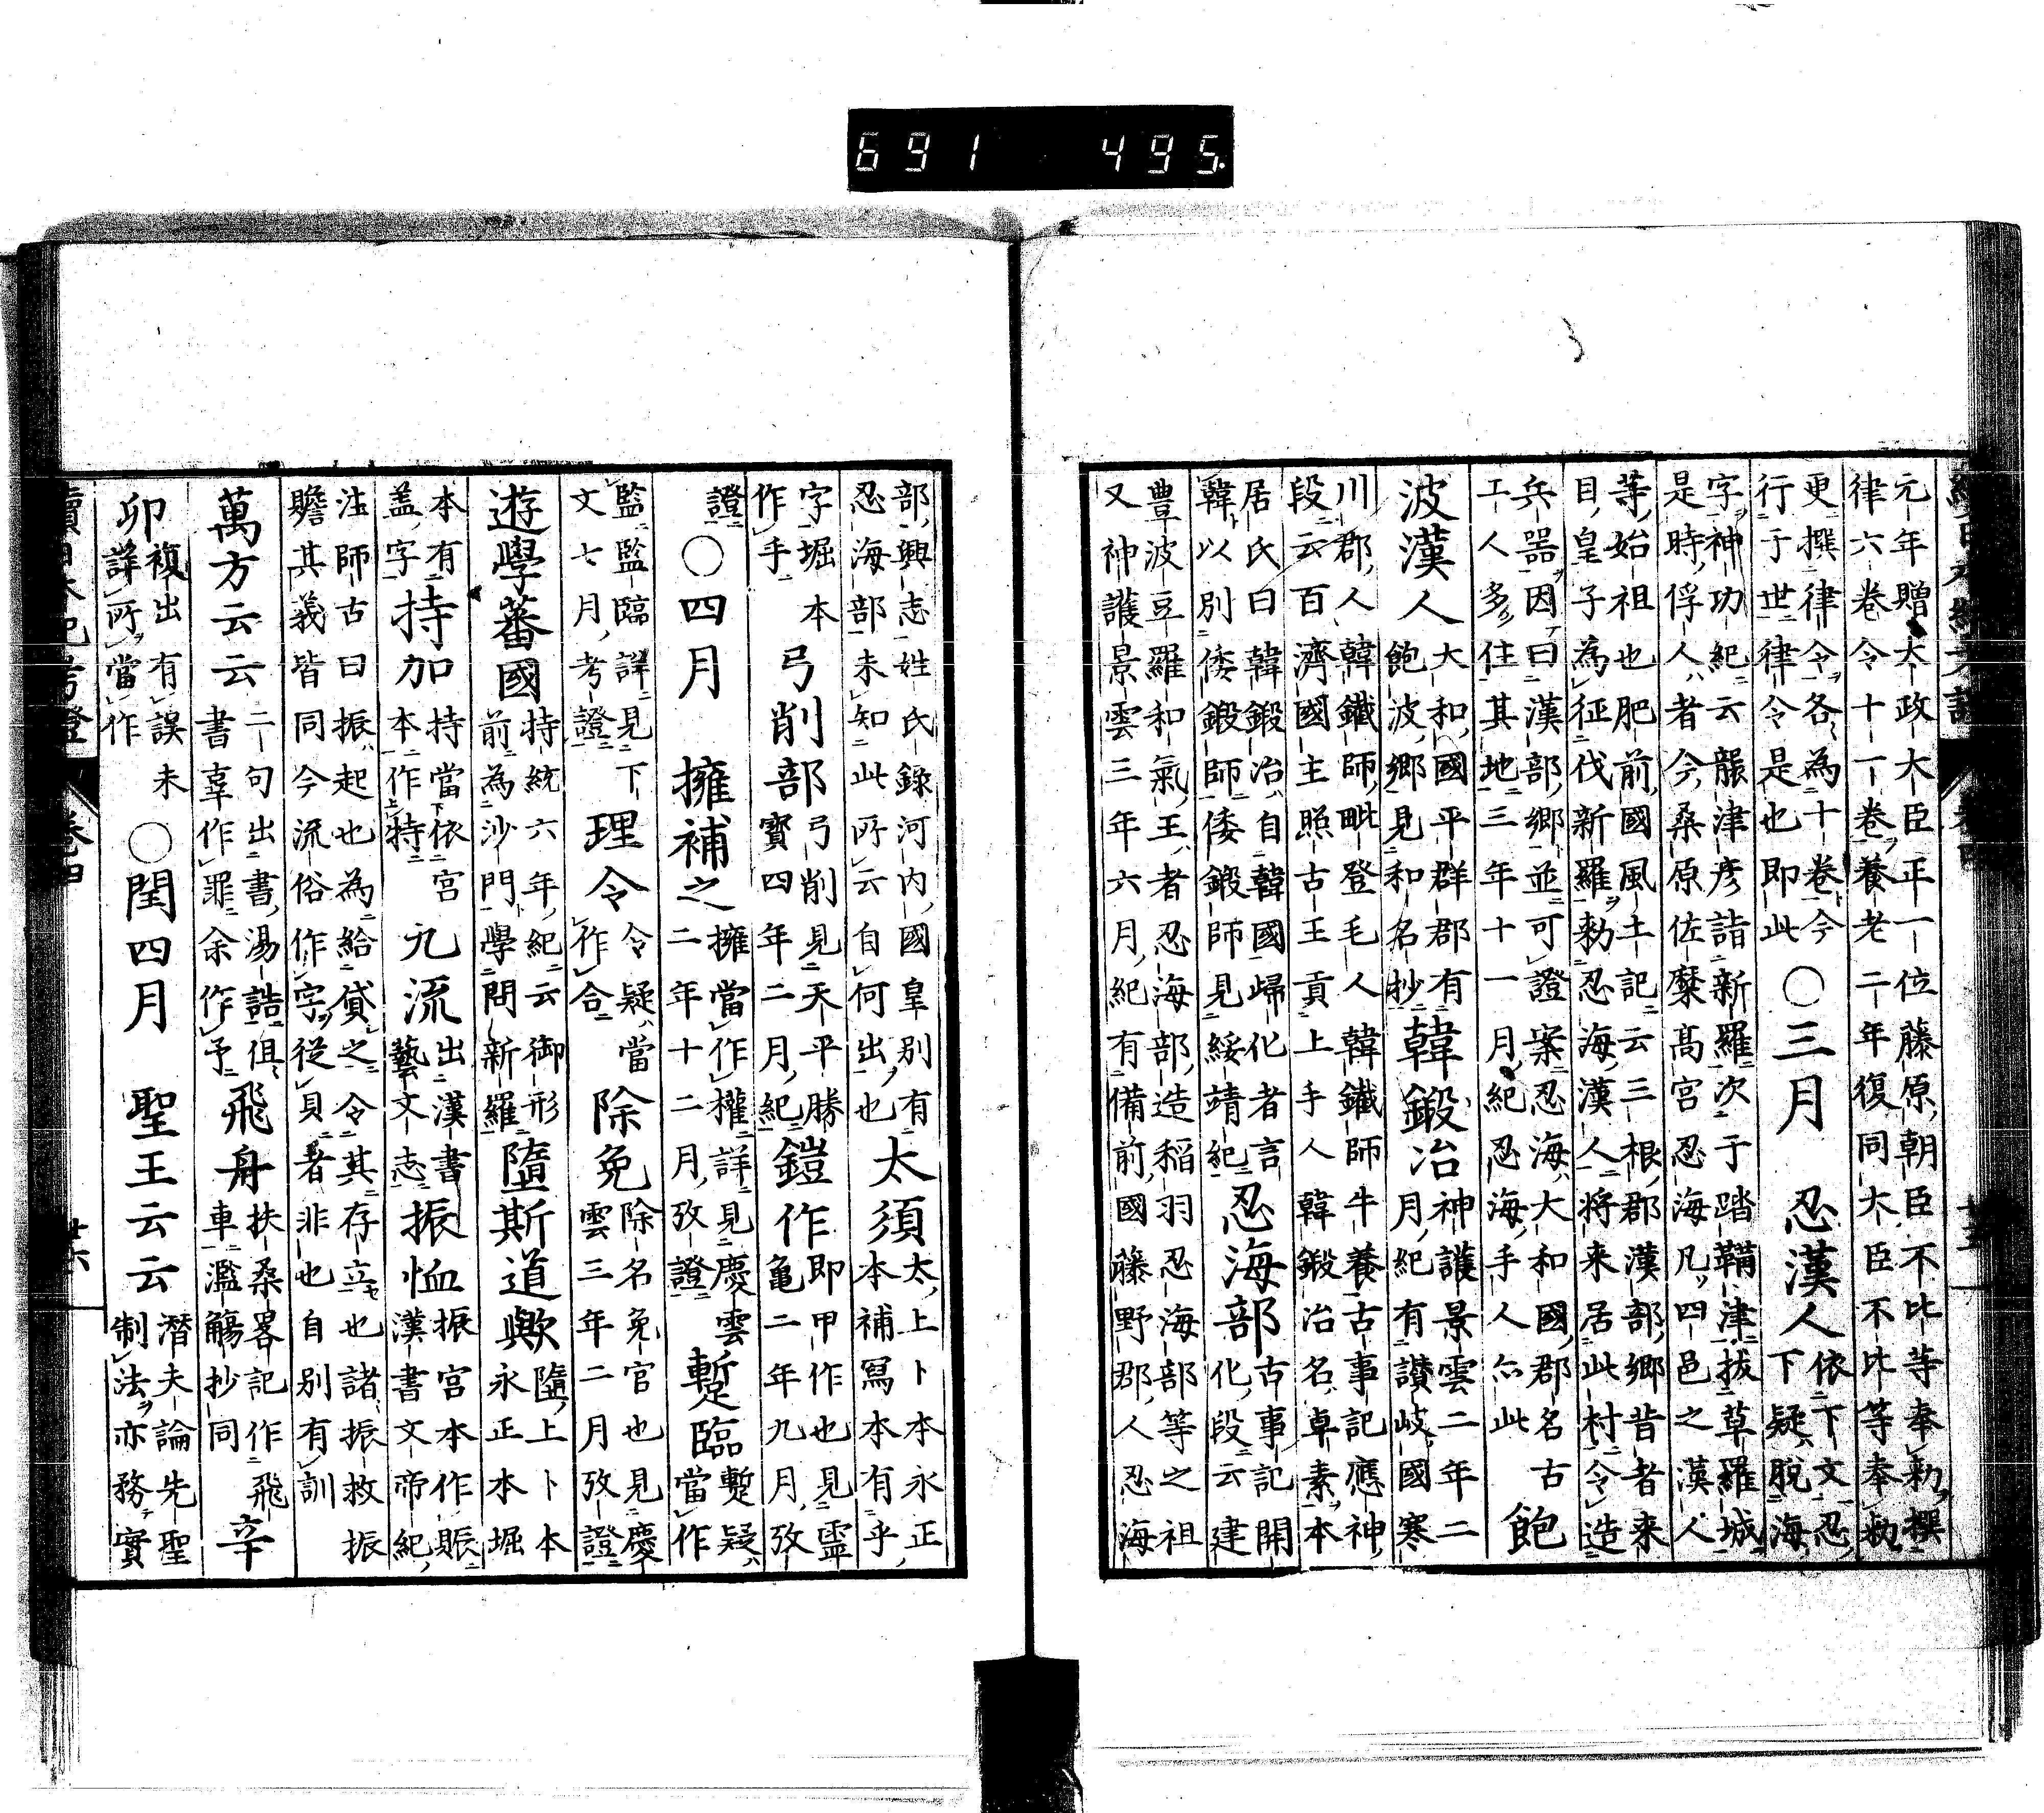 691 495
元年贈大政大臣正一位藤原朝臣不比等奉勅撰
律六巻令十一巻養老二年復同大臣不比等奉勅
更撰律令各為十巻今
行于世律令是也即此
〇三月
忍漢人
依下文忍
下疑脱海
字神功紀云襲津彦詣新羅次于踏鞴津拔草羅城
是時俘人者今桑原佐糜髙宮忍海凡四邑之漢人
等始祖也肥前國風土記云三根郡漢部郷昔者来
目皇子為征伐新羅勅忍海漢人将来居此村令造
兵器因曰漢部郷並可證案忍海大和國郡名古
工人多住其地三年十一月紀忍海手人亦此
飽
波漢人
大和國平群郡有
飽波郷見和名抄
韓鍛冶
神護景雲二年二
月紀有讃岐國寒
川郡人韓鐵師毗登毛人韓鐵師牛養古事記應神
段云百濟國主照古王貢上手人韓鍛冶名卓素本
居氏曰韓鍛冶自韓國歸化者言
韓以別倭鍛師倭鍛師見綏靖紀
忍海部
古事記開
化段云建
豊波豆羅和氣王者忍海部造稲羽忍海部等之祖
又神護景雲三年六月紀有備前國藤野郡人忍海
部興志姓氏録河内國皇別有
忍海部未知此所云自何出也
太須
太上卜本永正
本補寫本有乎
字堀本
作手
弓削部
弓削見天平勝
寳四年二月紀
鎧作
即甲作也見靈
亀二年九月攷
證
〇四月
擁補之
擁當作權詳見慶雲
二年十二月攷證
蹔臨
蹔疑
當作
監監臨詳見下
文七月考證
理令
令疑當
作合
除免
除名免官也見慶
雲三年二月攷證
遊學蕃國
持統六年紀云御形
前為沙門學問新羅
墮斯道歟
墮上卜本
永正本堀
本有
盖字
持加
持當下依宮
本作上特
九流
出漢書
藝文志
振恤
振宮本作賑
漢書文帝紀
注師古曰振起也為給貸之令其存立也諸振救振
贍其義皆同今流俗作字從貝者非也自別有訓
萬方云云
二句出書湯誥但
書辜作罪余作予
飛舟
扶桑畧記作飛
車濫觴抄同
辛
卯
複出有誤未
詳所當作
〇閏四月
聖王云云
潜夫論先聖
制法亦務實